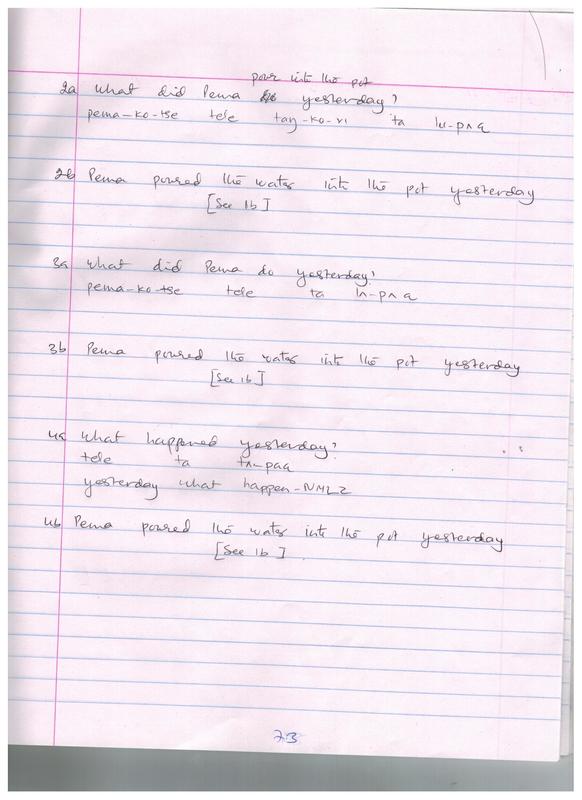 pour into the pot
2a What did Pema yesterday?
pema-ko-tse tele taŋ-ko-ri ta lʌ-pʌ a
2b Pema poured the water into the pot yesterday
[See 1b]
3a What did Pema do yesterday?
pema-ko-tse tele ta lʌ-pʌ a
3b Pema poured the water into the pot yesterday
[See 1b]
4a What happened yesterday?
tele ta tʌ-paa
yesterday what happen-NMLZ
4b Pema poured the water into the pot yesterday
[See 1b]
73